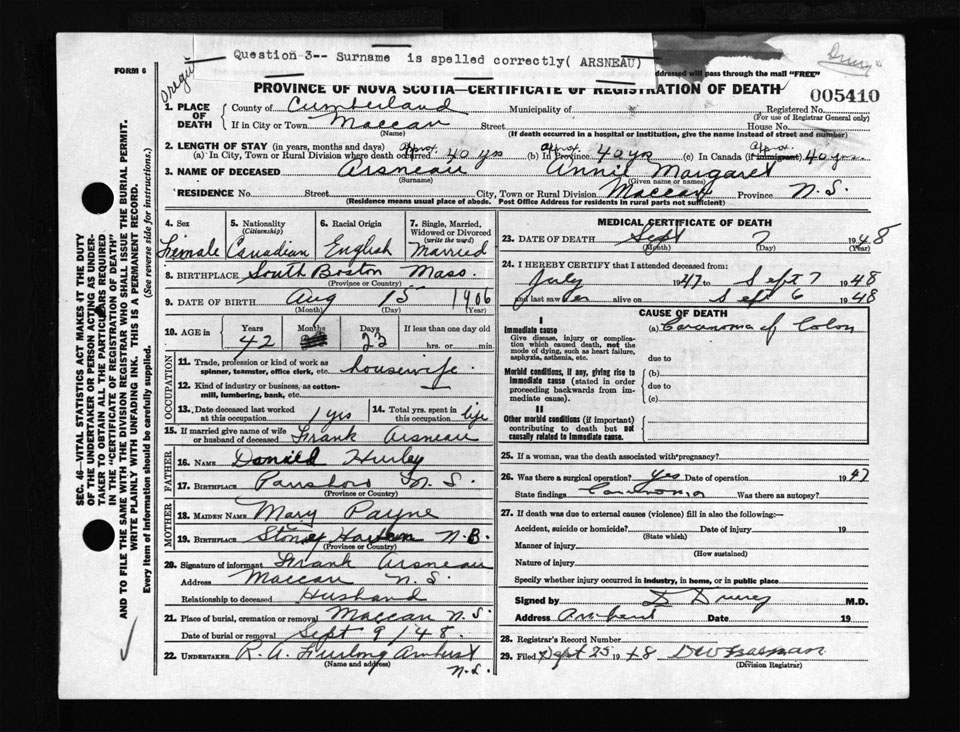 Question 3-- Surname is spelled correctly( ARSNEAU)
FORM 6
addressed will pass through the mail "FREE"
PROVINCE OF NOVA SCOTIA—CERTIFICATE OF REGISTRATION OF DEATH
005410
1. PLACE OF DEATH
County of Cumberland Municipality of Registered No.
(For use of Registrar General only)
If in City or Town Maccan Street House No.
(Name) (If death occurred in a hospital or institution, give the name instead of street and number)
2. LENGTH OF STAY (in years, months and days)
(a) In City, Town or Rural Division where death occurred Approx. 40 yrs (b) In Province Approx. 40 yrs (c) In Canada (if immigrant) Approx. 40 yrs.
3. NAME OF DECEASED Arsneau Annie Margaret
(Surname) (Given name or names)
RESIDENCE No. Street City, Town or Rural Division Maccan Province N.S.
(Residence means usual place of abode. Post Office Address for residents in rural parts not sufficient)
4. Sex 5. Nationality (Citizenship) 6. Racial Origin 7. Single, Married, Widowed or Divorced (write the word)
Female Canadian English Married
8. BIRTHPLACE South Boston Mass.
(Province or Country)
9. DATE OF BIRTH Aug 15 1906
(Month) (Day) (Year)
10. AGE in Years Months Days If less than one day old
42 23 hrs. or min.
OCCUPATION
11. Trade, profession or kind of work as spinner, teamster, office clerk, etc. housewife
12. Kind of industry or business, as cotton-mill, lumbering, bank, etc.
13. Date deceased last worked at this occupation 1 yrs 14. Total yrs. spent in this occupation life
15. If married give name of wife or husband of deceased Frank Arsneau
FATHER
16. NAME Donald Hurley
17. BIRTHPLACE Parrsboro N.S.
(Province or Country)
MOTHER
18. MAIDEN NAME Mary Payne
19. BIRTHPLACE N.B.
(Province or Country)
20. Signature of informant Frank Arsneau
Address Maccan N.S.
Relationship to deceased Husband
21. Place of burial, cremation or removal Maccan N.S
Date of burial or removal Sept 9/48.
22. UNDERTAKER R.A. Furlong Amherst
(Name and address) N.S.
MEDICAL CERTIFICATE OF DEATH
23. DATE OF DEATH Sept 7 1948
(Month) (Day) (Year)
24. I HEREBY CERTIFY that I attended deceased from:
July 1947 to Sept 7 1948
and last saw her alive on Sept 6 1948
CAUSE OF DEATH
I
Immediate cause (a) Carcinoma of Colon
Give disease, injury or complication which caused death, not the mode of dying, such as heart failure, asphyxia, asthenia, etc.
due to
Morbid conditions, if any, giving rise to immediate cause (stated in order proceeding backwards from immediate cause).
(b)
due to
(c)
II
Other morbid conditions (if important) contributing to death but not causally related to immediate cause.
25. If a woman, was the death associated with pregnancy?
26. Was there a surgical operation? yes Date of operation 1947
State findings Carcinoma Was there an autopsy?
27. If death was due to external causes (violence) fill in also the following:—
Accident, suicide or homicide? Date of injury 19
(State which)
Manner of injury
(How sustained)
Nature of injury
Specify whether injury occurred in industry, in home, or in public place
Signed by D Drury M.D.
Address Amherst Date 19
28. Registrar's Record Number
29. Filed Sept 25 1948
(Division Registrar)
SEC. 46—VITAL STATISTICS ACT MAKES IT THE DUTY
OF THE UNDERTAKER OR PERSON ACTING AS UNDER-
TAKER TO OBTAIN ALL THE PARTICULARS REQUIRED
IN THE "CERTIFICATE OF REGISTRATION OF DEATH"
AND TO FILE THE SAME WITH THE DIVISION REGISTRAR WHO SHALL ISSUE THE BURIAL PERMIT.
WRITE PLAINLY WITH UNFADING INK. THIS IS A PERMANENT RECORD.
Every item of Information should be carefully supplied. (See reverse side for instructions.)